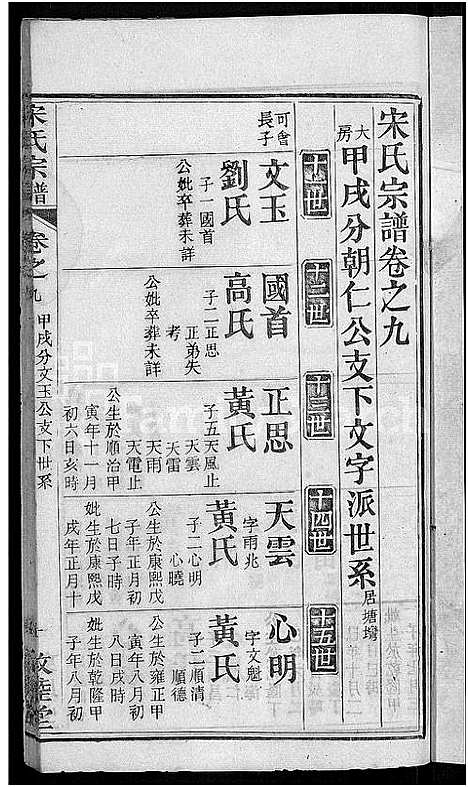 宋氏宗譜卷之九
大房甲戌分朝仁公支下文字派世系居塘塆
十一世
十二世
十三世
十四世
十五世
可會長子
文玉
劉氏
子一國首
公妣卒葬未詳
國首
高氏
子二正思
正弟失考
公妣卒葬未詳
正思
黃氏
子五天風止
天雲
天雷
天雨
天電止
公生於順治甲
寅年十一月
初六日亥時
天雲
字雨兆
黃氏
子二心明
心曉
公生於康熙戊
子年正月初
七日子時
妣生於康熙戊
戌年正月十
心明
字文魁
黃氏
子二順清
順德
公生於雍正甲
寅年八月初
八日戌時
妣生於乾隆甲
子年八月初
宋氏宗譜
卷之九
甲戌分文玉公支下世系
一